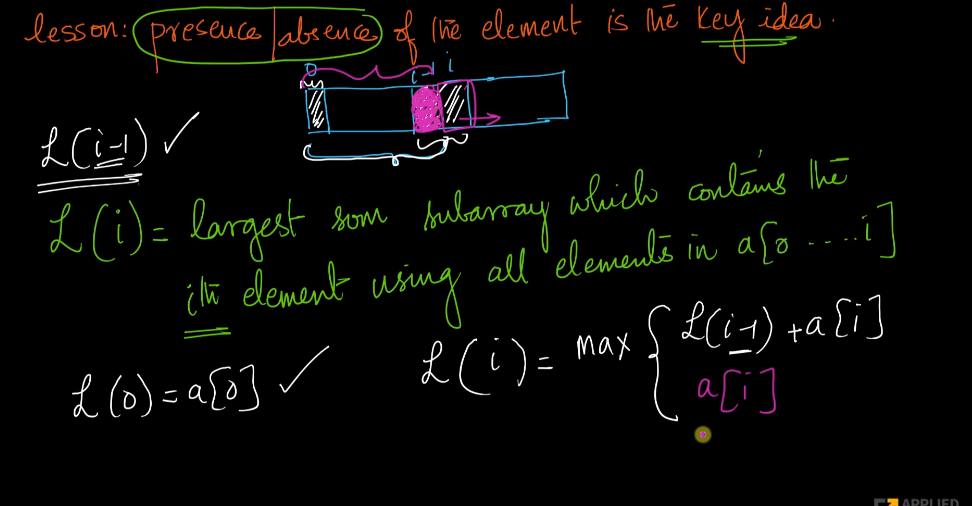 lesson: presence|absence of the element is the key idea.
0 i-1 i
L(i-1) ✓
L(i) = largest som subarray which contains the
ith element using all elements in a[0 .....i]
L(0) = a[0] ✓
L(i) = max { L(i-1) + a[i]
a[i]
APPLIED